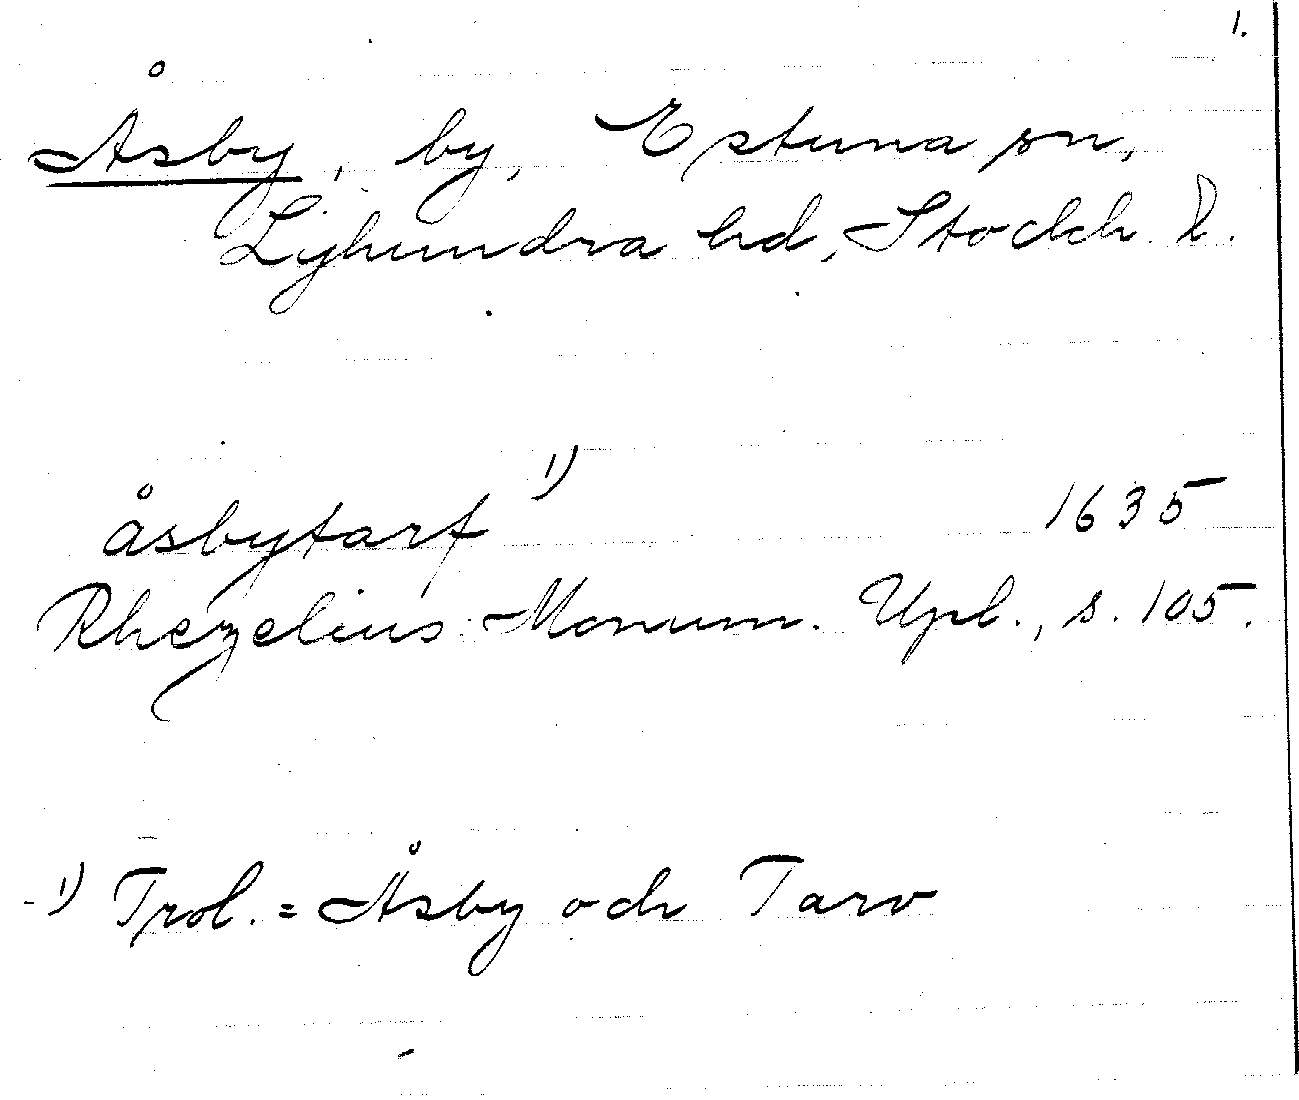 1.
Åsby, by, Estuna sn,
Lyhundra hd, Stockh. l.
åsbytarf 1) 1635
Rhezelius Monum. Upl., s. 105.
1) Trol. = Åsby och Tarv